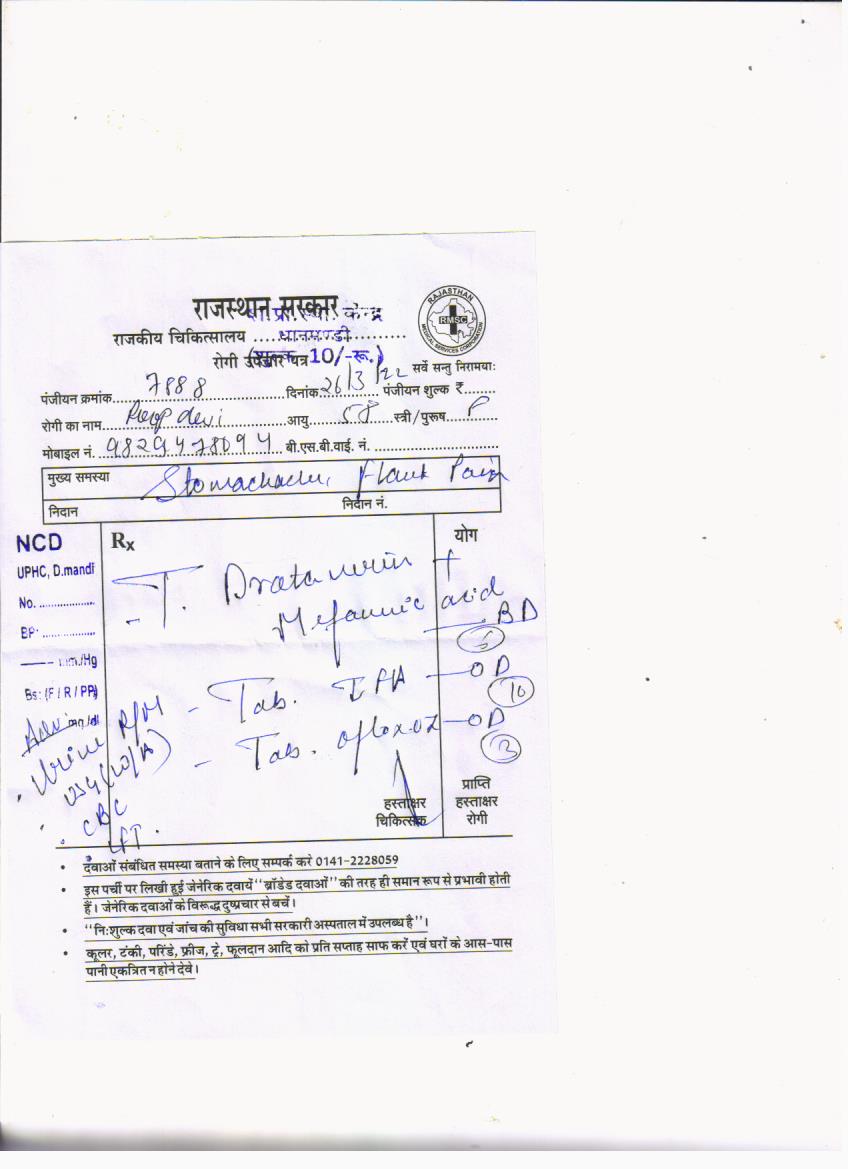 राजस्थान सरकार
शा.प्रा.स्वा. केन्द्र
राजकीय चिकित्सालय ..... धानमण्डी
रोगी उपचार पत्र 10/-रू.)
RAJASTHAN
RMSC
MEDICAL SERVICES CORPORATION
सर्वे सन्तु निरामयाः
पंजीयन क्रमांक 7888 दिनांक 26/3/22 पंजीयन शुल्क ₹
रोगी का नाम Roop devi आयु 58 स्त्री/पुरूष F
मोबाइल नं. 9829478094 बी.एस.बी.वाई. नं.
मुख्य समस्या Stomachache, Flank Pain
निदान निदान नं.
NCD
UPHC, D.mandi
No. ..................
BP: ................
mm/Hg
Bs: (F / R / PP)
mg/dl
Adv
Urine R/M
USG (W/A)
CBC
LFT.
Rx
योग
- T. Drotaverin +
Mefanmic acid
BD
5
- Tab. IFA — OD
10
- Tab. Ofloxoz — OD
3
हस्ताक्षर
चिकित्सक
प्राप्ति
हस्ताक्षर
रोगी
• दवाओं संबंधित समस्या बताने के लिए सम्पर्क करे 0141-2228059
• इस पर्ची पर लिखी हुई जेनेरिक दवायें "ब्रॉडेड दवाओं" की तरह ही समान रूप से प्रभावी होती
हैं। जेनेरिक दवाओं के विरूद्ध दुष्प्रचार से बचें।
• "निःशुल्क दवा एवं जांच की सुविधा सभी सरकारी अस्पताल में उपलब्ध है"।
• कूलर, टंकी, परिंडे, फ्रीज, ट्रे, फूलदान आदि को प्रति सप्ताह साफ करें एवं घरों के आस-पास
पानी एकत्रित न होने देवे।